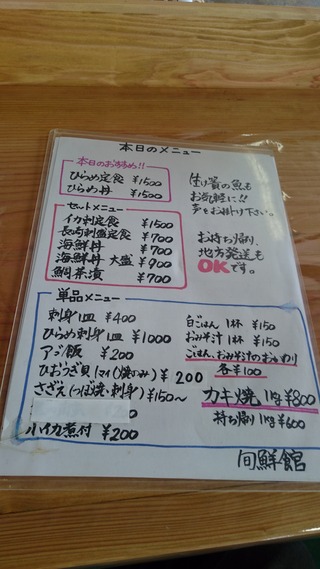 本日のメニュー
本日のおすすめ!!
ひらめ定食 ¥1500
ひらめ丼 ¥1500
生け簀の魚も
お気軽に!!
声をお掛け下さい。
お持ち帰り、
地方発送も
OKです。
セットメニュー
イカ刺定食 ¥1500
長崎刺盛定食 ¥700
海鮮丼 ¥700
海鮮丼 大盛 ¥900
鯛茶漬 ¥700
単品メニュー
刺身1皿 ¥400
ひらめ刺身1皿 ¥1000
アゴ飯 ¥200
ひおうぎ貝(1ケ)(焼のみ) ¥200
さざえ(つぼ焼・刺身) ¥150~
小イカ煮付 ¥200
白ごはん 1杯 ¥150
おみそ汁 1杯 ¥150
ごはん、おみそ汁のおかわり
各¥100
カキ焼 1kg ¥800
持ち帰り 1kg ¥600
旬鮮館